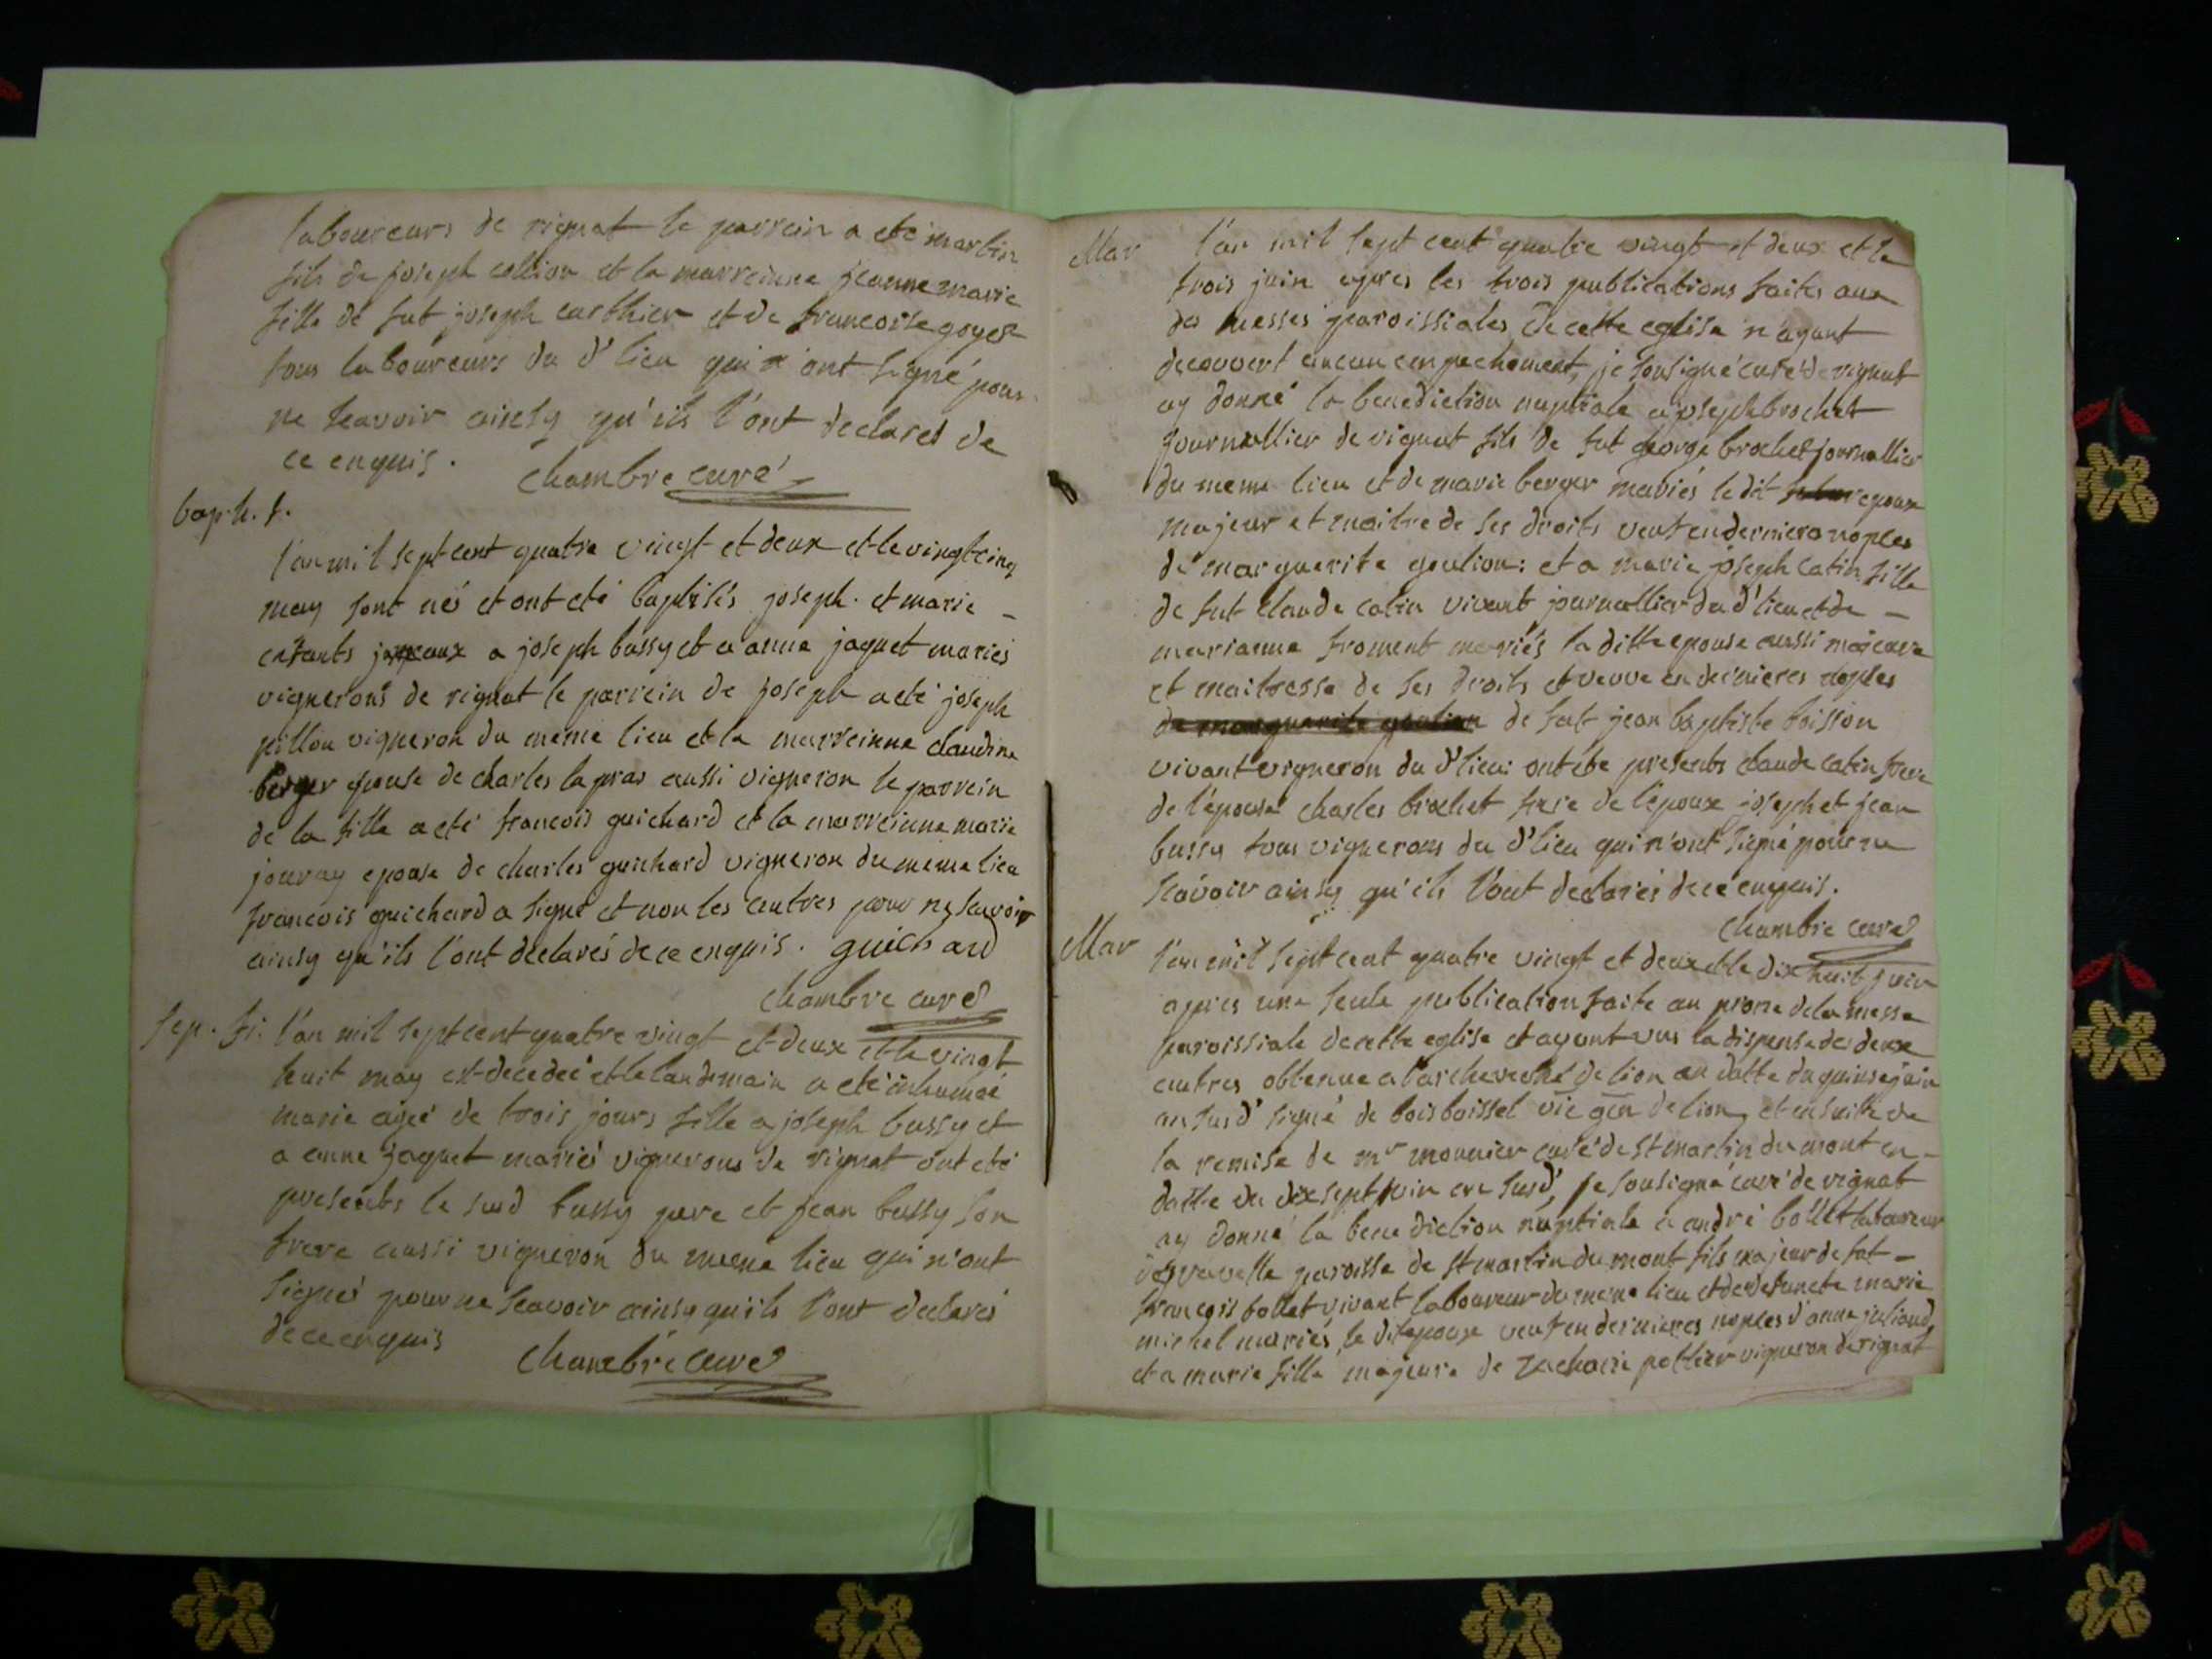 laboureurs de rignat le parrein a eté martin
fils de joseph collion et la marreinne jeanne marie
fille de fut joseph carthier et de francoise goyet
tous laboureurs du d' lieu qui n'ont signé pour
ne scavoir ainsy qu'ils l'ont declarés de
ce enquis. Chambre curé
bap. h. f.
l'an mil sept cent quatre vingt et deux et le vingt cinq
may sont nés et ont eté baptisés joseph et marie -
enfants jumeaux a joseph bussy et a anne jaquet mariés
vignerons de rignat le parrein de joseph a eté joseph
pillon vigneron du meme lieu et la marreinne claudine
berger epouse de charles lapras aussi vigneron le parrein
de la fille a eté francois guichard et la marreinne marie
jouvay epouse de charles guichard vigneron du meme lieu
francois guichard a signé et non les autres pour ne scavoir
ainsy qu'ils l'ont declarés de ce enquis. guichard
Chambre curé
sep. fi. l'an mil sept cent quatre vingt et deux et le vingt
huit may est decedée et le landemain a eté inhumée
marie agée de trois jours fille a joseph bussy et
a anne jaquet mariés vignerons de rignat ont eté
presents le susd bussy pere et jean bussy son
frere aussi vigneron du meme lieu qui n'ont
signés pour ne scavoir ainsy qu'ils l'ont declarés
de ce enquis
Chambre curé
Mar l'an mil sept cent quatre vingt et deux et le
trois juin apres les trois publications faites aux
des messes paroissiales de cette eglise n'ayant
decouvert aucun empechement, je sousigné curé de rignat
ay donné la benediction nuptiale a joseph brochet
journallier de rignat fils de fut george brochet journallier
du meme lieu et de marie berger mariés le dit epoux
majeur et maitre de ses droits veuf en derniere nopces
de marguerite goulion: et a marie joseph catin fille
de fut claude catin vivant journallier du d' lieu et de -
marianne froment mariés la ditte epouse aussi majeure
et maitresse de ses droits et veuve en dernieres nopces
de marguerite goulion de fut jean baptiste boission
vivant vigneron du d' lieu: ont ete presents claude catin frere
de l'epouse charles brochet frere de l'epoux joseph et jean
bussy tous vignerons du d' lieu qui n'ont signé pour ne
scavoir ainsy qu'ils l'ont declarés de ce enquis.
Chambre curé
Mar l'an mil sept cent quatre vingt et deux et le dix huit juin
apres une seule publication faite au prone de la messe
paroissiale de cette eglise et ayant vus la dispense des deux
autres obtenue a l'archeveché de lion en datte du quinse juin
an susd' signé de bois boissel vic gen de lion, et ensuitte de
la remise de mr monnier curé de st martin du mont en -
datte du dix sept juin an susd', je sousigné curé de rignat
ay donné la benediction nuptiale a andré bollet laboureur
paroisse de st martin du mont fils majeur de fut -
francois bollet vivant laboureur du meme lieu et de defuncte marie
michel mariés, le dit epoux veuf en dernieres nopces d'anne juliand,
et a marie fille majeure de zacharie pottier vigneron de rignat